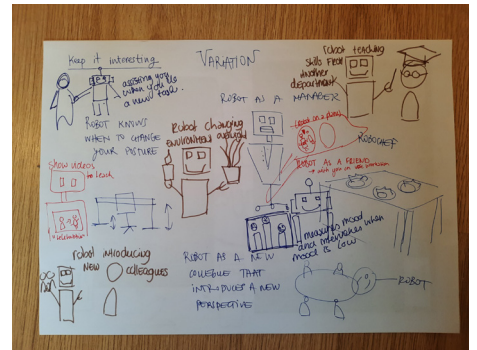 Keep it interesting
VARIATION
assisting you
when you do
a new task.
robot teaching
skills from
another
department
ROBOT AS A MANAGER
ROBOT KNOWS
WHEN TO CHANGE
YOUR POSTURE
Robot changing
environment
ROBOCHEF
ROBOT AS A FRIEND
show videos
to teach
measures mood
and intervenes when
mood is low
robot introducing
NEW colleagues
ROBOT AS A NEW
COLLEGUE THAT
INTRODUCES A NEW
PERSPECTIVE
ROBOT